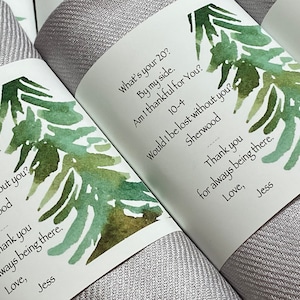 What's your 20?
By my side.
Am I thankful for You?
10-4
Would I be lost without you?
Sherwood
Thank you
for always being there.
Love, Jess
out you?
ood
ank you
always being there.
Love, Jess